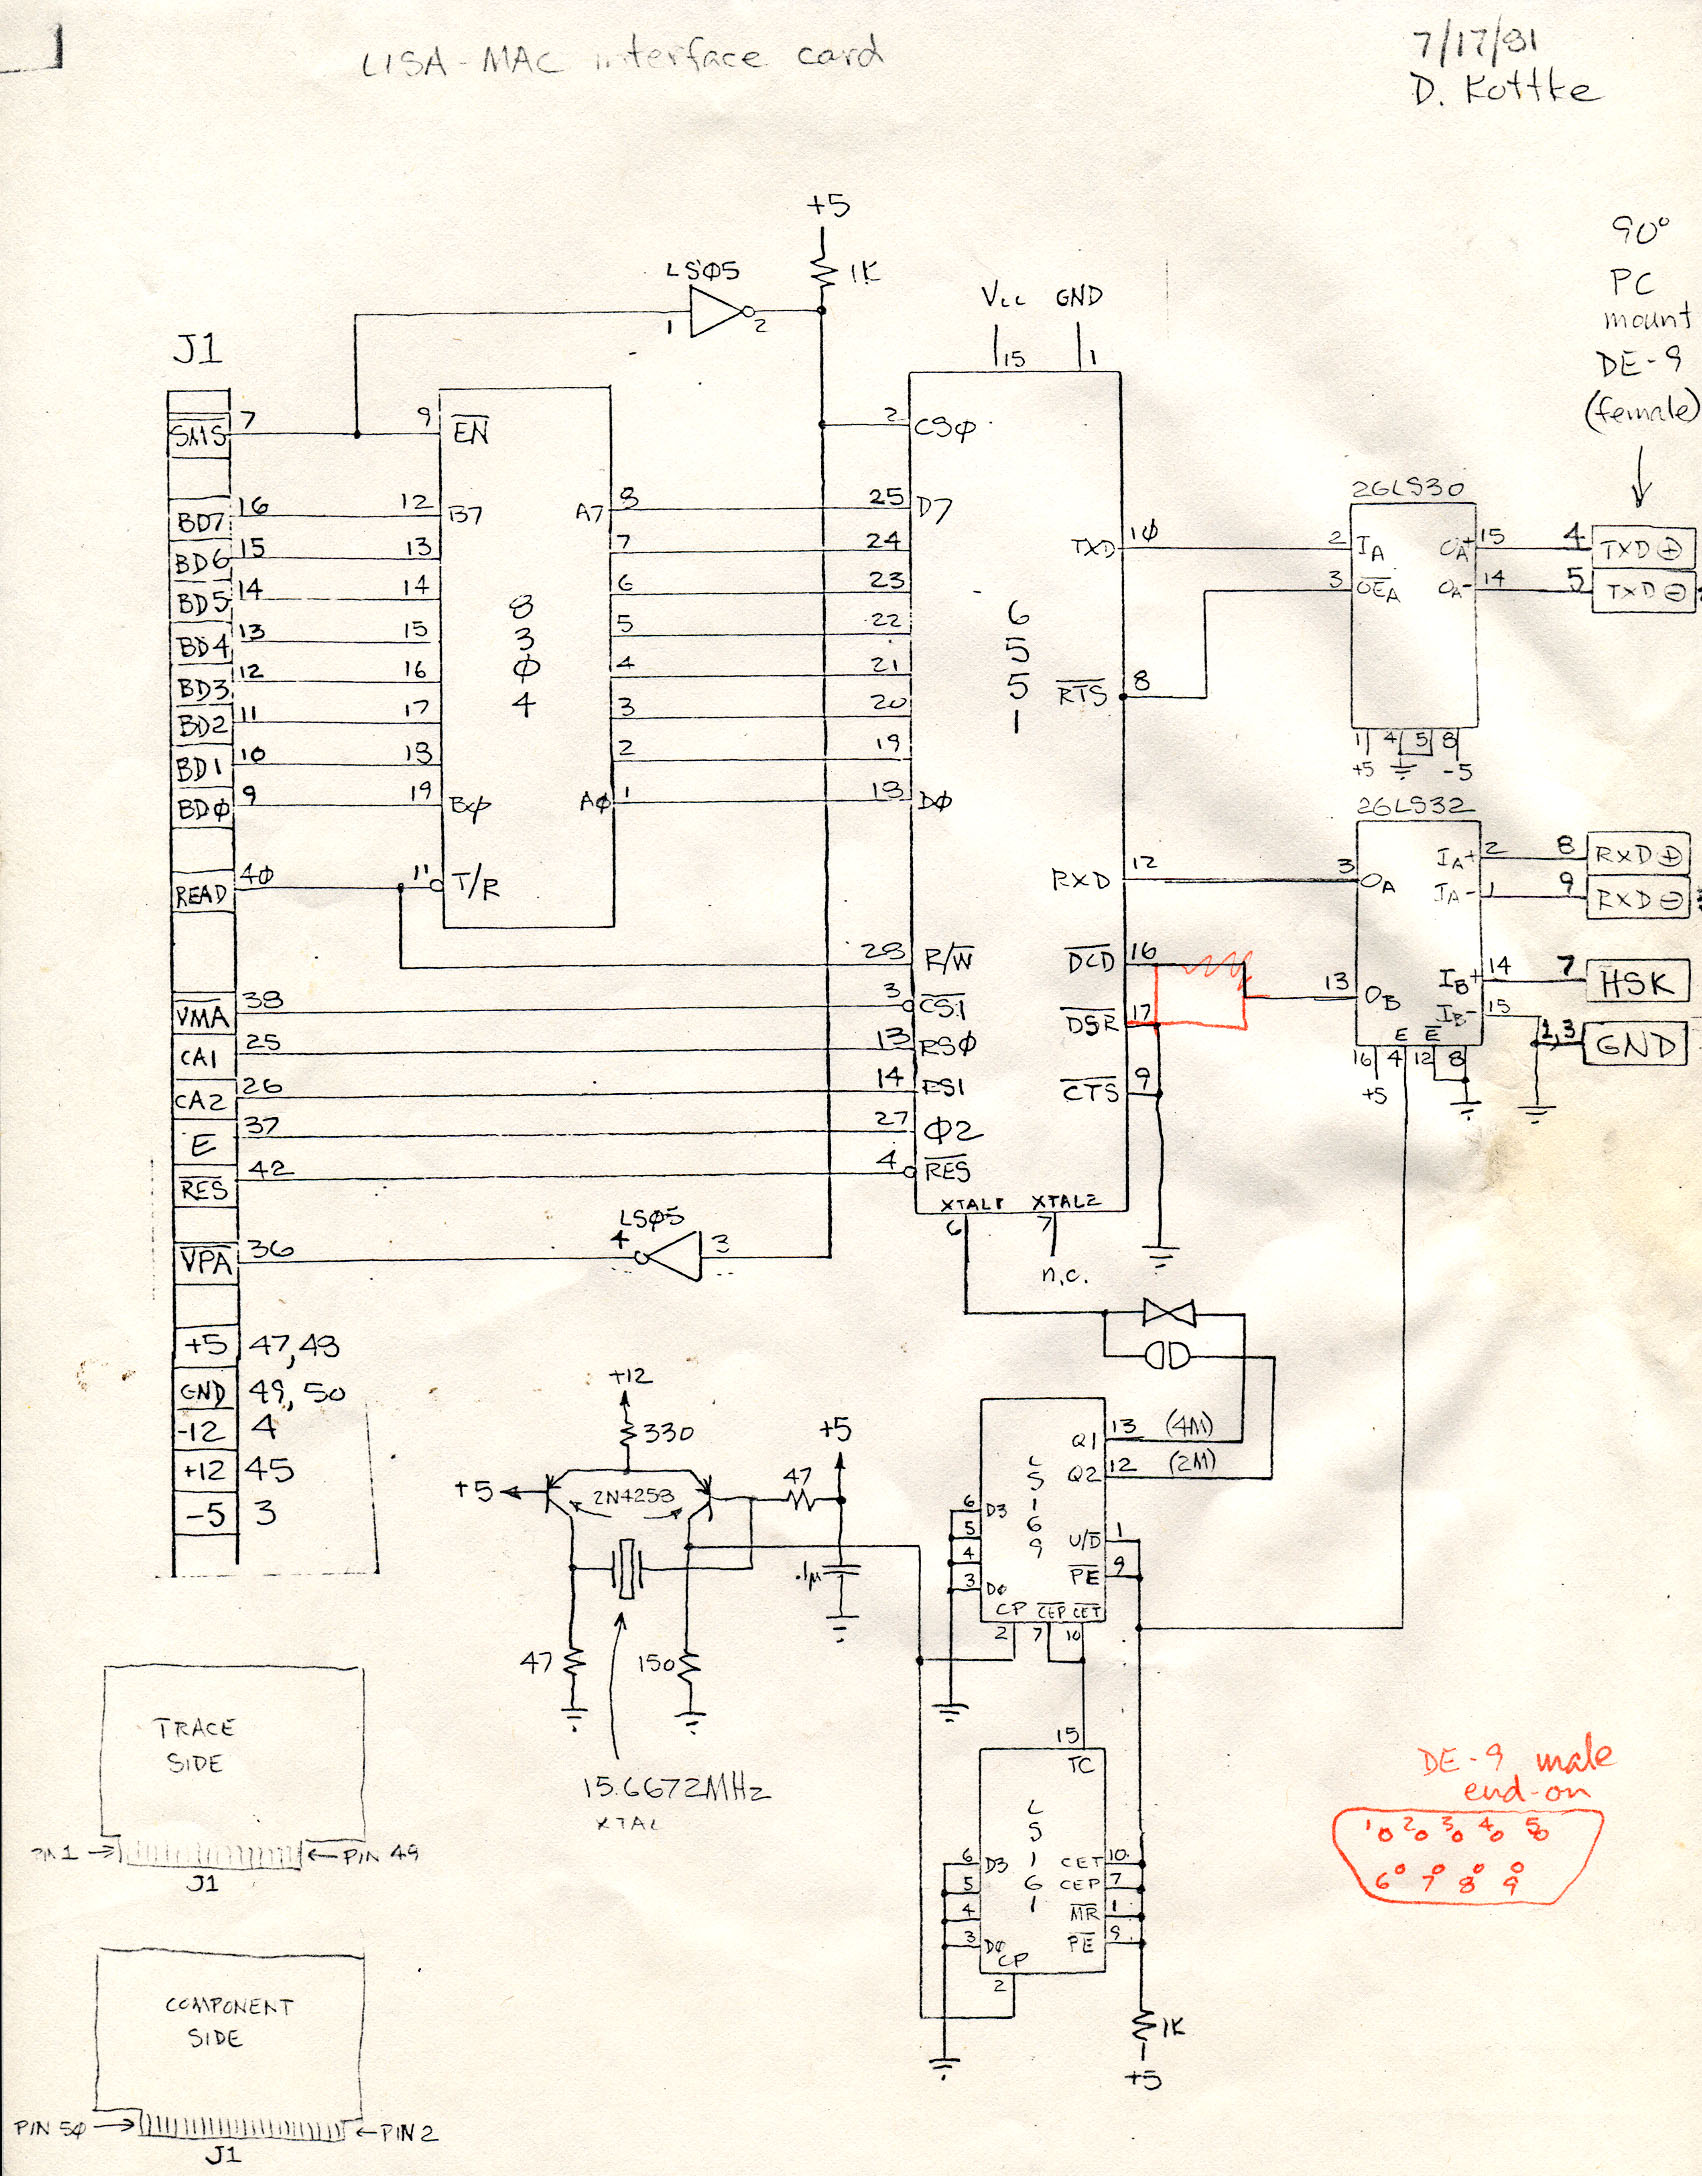 LISA-MAC interface card
7/17/81
D. Kottke
+5
1K
LSØ5
1
2
Vcc GND
15
1
90°
PC
mount
DE-9
(female)
J1
SMS 7
9 EN
2 CSØ
BD7 16
12 B7
A7 8
25 D7
BD6 15
13
7
24
BD5 14
14
6
23
BD4 13
15
5
22
BD3 12
16
4
21
BD2 11
17
3
20
BD1 10
18
2
19
BDØ 9
19 BØ
AØ 1
18 DØ
8
3
Ø
4
6
5
5
1
READ 40
11 T/R
28 R/W
VMA 38
3 CS1
CA1 25
13 RSØ
CA2 26
14 RS1
E 37
27 Φ2
RES 42
4 RES
VPA 36
LSØ5
4
3
+5 47,48
GND 49,50
-12 4
+12 45
-5 3
TXD 10
RTS 8
RXD 12
DCD 16
DSR 17
CTS 9
XTAL1 XTAL2
6
7
n.c.
26LS30
2 IA
OA+ 15
4 TXD ⊕
3 OEA
OA- 14
5 TXD ⊖
1 4 5 8
+5
-5
26LS32
3 OA
IA+ 2
8 RXD ⊕
IA- 1
9 RXD ⊖
13 OB
IB+ 14
7 HSK
IB- 15
1,3 GND
E E
16 4 12 8
+5
+12
330
+5
2N4258
47
+5
.1μ
47
150
15.6672MHz
XTAL
LS169
Q1 13 (4M)
Q2 12 (2M)
6 D3
5
4
3 DØ
U/D 1
PE 9
CP CEP CET
2 7 10
15
TC
LS161
6 D3
5
4
3 DØ
CET 10
CEP 7
MR 1
PE 9
CP
2
1K
+5
TRACE
SIDE
PIN 1
PIN 49
J1
COMPONENT
SIDE
PIN 50
PIN 2
J1
DE-9 male
end-on
1 2 3 4 5
6 7 8 9